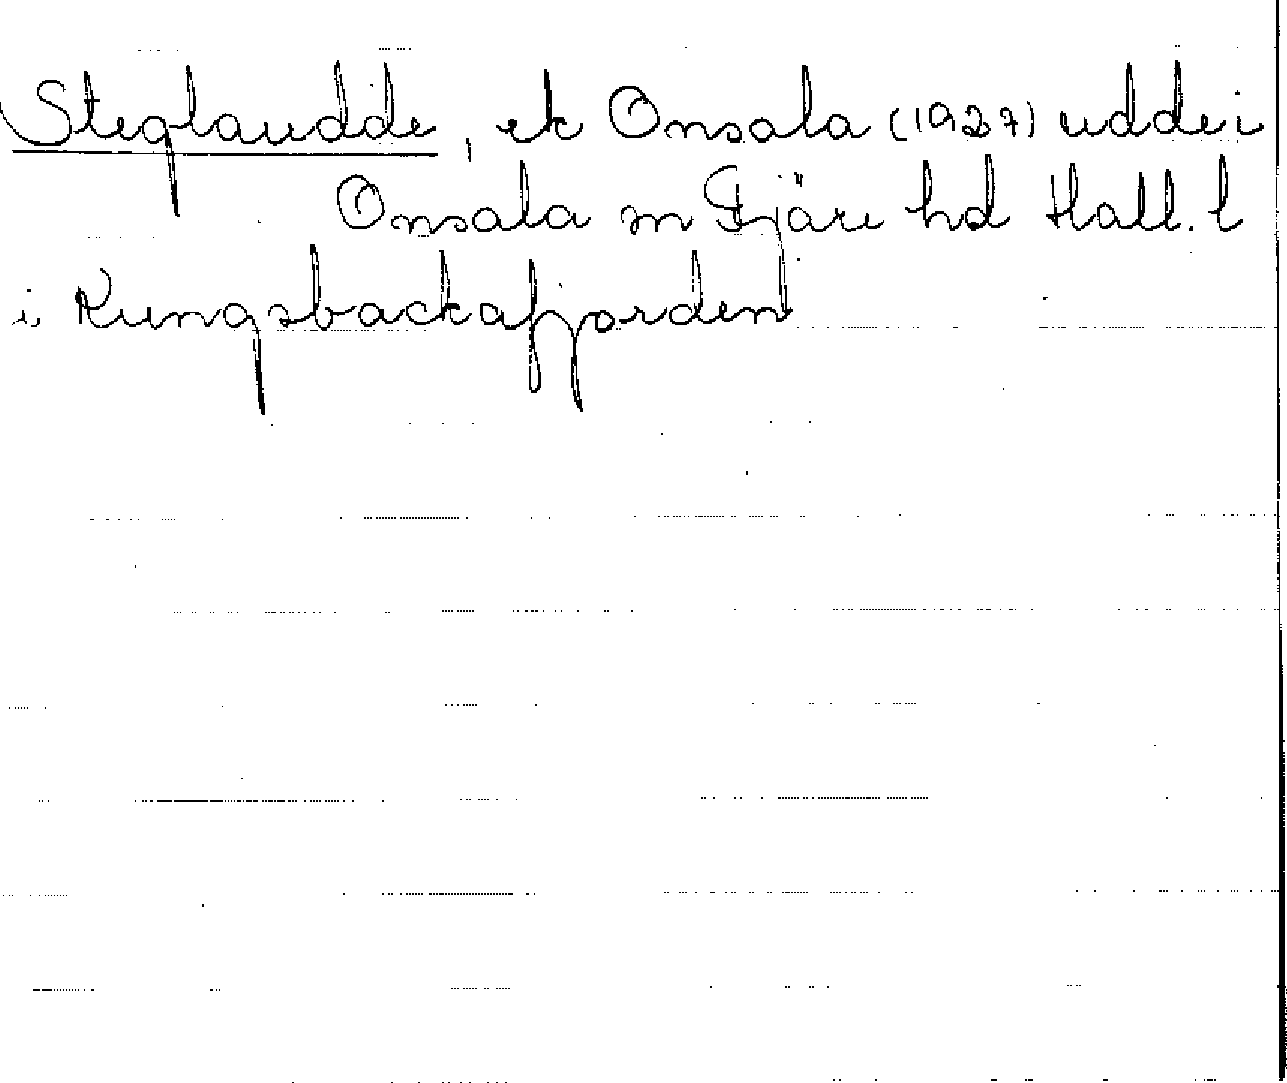 Steglaudde, ek Onsala (1927) udde i
Onsala sn Fjäre hd Hall. l
i Kungsbackafjorden